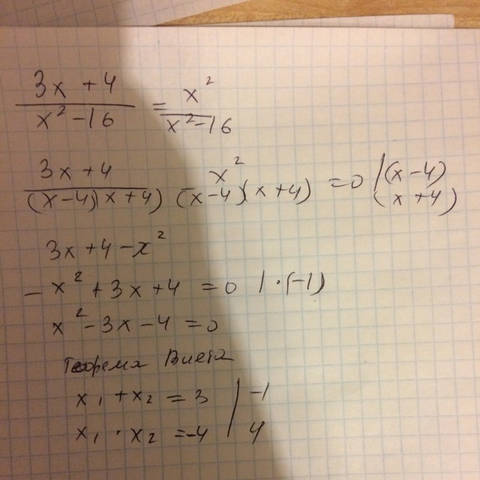 3x + 4 / x² - 16 = x² / x² - 16
3x + 4 / (x - 4)(x + 4) x² / (x - 4)(x + 4) = 0 | (x - 4) (x + 4)
3x + 4 - x²
- x² + 3x + 4 = 0 | · (-1)
x² - 3x - 4 = 0
Теорема Виета
x₁ + x₂ = 3 | -1
x₁ · x₂ = -4 | 4